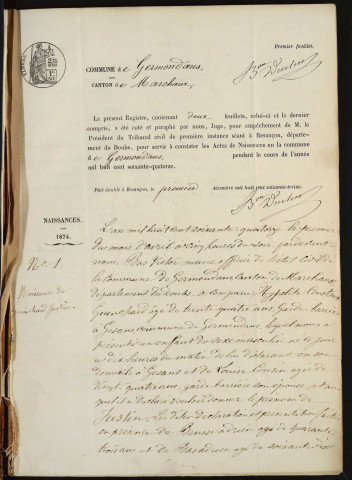 Premier feuillet.
COMMUNE de Germondans,
CANTON de Marchaux,
Le présent Registre, contenant deux feuillets, celui-ci et le dernier
compris, a été coté et paraphé par nous, Juge, pour empêchement de M. le
Président du Tribunal civil de première instance séant à Besançon, département
du Doubs, pour servir à constater les Actes de Naissances en la commune
de Germondans pendant le cours de l'année
mil huit cent soixante-quatorze.
Fait double à Besançon, le premier décembre mil huit cent soixante-treize.
NAISSANCES.
1874.
No. 1
Naissance de
Justin
L'an mil huit cent soixante quatorze le premier
du mois d'avril à cinq heures du soir, par devant
nous, Victor, maire officier de l'état civil de
la commune de Germondans, canton de Marchaux
département du Doubs, a comparu Hyppolite Constant
âgé de trente quatre ans, garde barrière
à Gesans, commune de Germondans, lequel nous a
présenté un enfant du sexe masculin né ce jour
à dix heures du matin de lui déclarant en son
domicile à Gesans et de Louise âgée de
vingt quatre ans, garde barrière son épouse, et au-
quel il a déclaré vouloir donner le prénom de
Justin. Les dites déclaration et présentation faites
en présence de adrien âgé de quarante
trois ans et de âgé de soixante dix